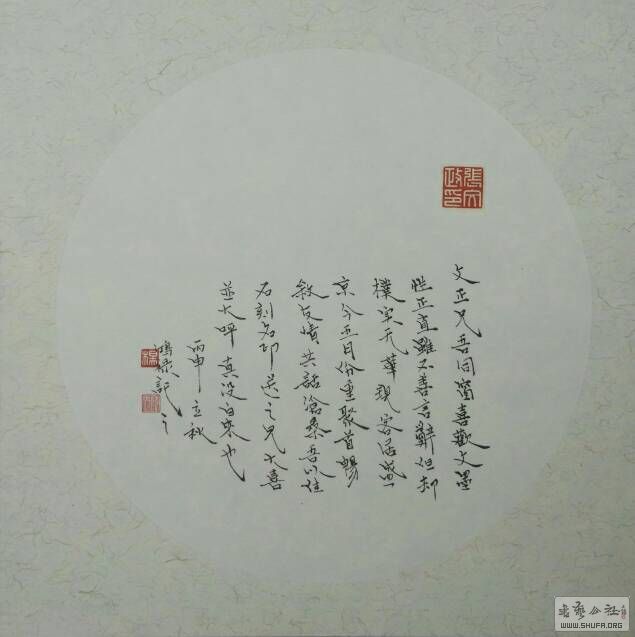 張文政印
文正兄吾同窗喜歡文墨
性正直雖不善言辭但却
樸实无華現客居盛
京今五月份重聚首暢
敘友情共話滄桑吾以佳
石刻名印送之兄大喜
並大呼真没白来也
丙申立秋
記之
书艺公社
WWW.SHUFA.ORG